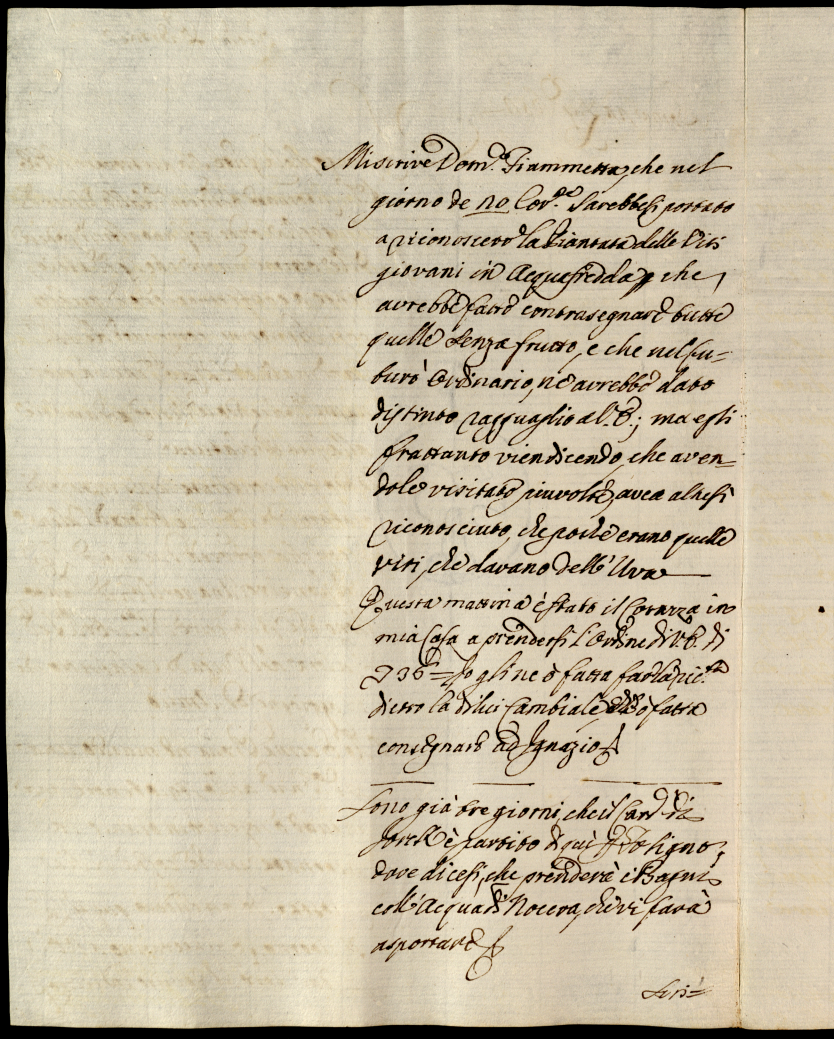 Mi scrive Dom.co Fiammetta, che nel
giorno de 20 Cor.te sarebbesi portato
a riconoscere la Piantata delle Viti
giovani in Acquafredda, che
avrebbe fatto contrasegnare tutte
quelle senza frutto, e che nel fu=
turo ordinario, ne avrebbe dato
distinto ragguaglio a V. E.; ma egli
frattanto vien dicendo, che aven=
dole visitate piu volte, avea altresi
riconosciuto, che poche erano quelle
viti, che davano dell'Uva
Questa mattina è stato il Corazza in
mia Casa a prendersi l'Ordine di V. E. di
736= Io gline ò fatta far la ric.ta
dietro la di lui Cambiale, ò fatta
consegnare ad Ignazio
Sono già tre giorni, che il Card. di
è partito di quì p Foligno,
dove dicesi, che prenderà i Bagni
coll'Acqua di Nocera, che vi farà
asportare